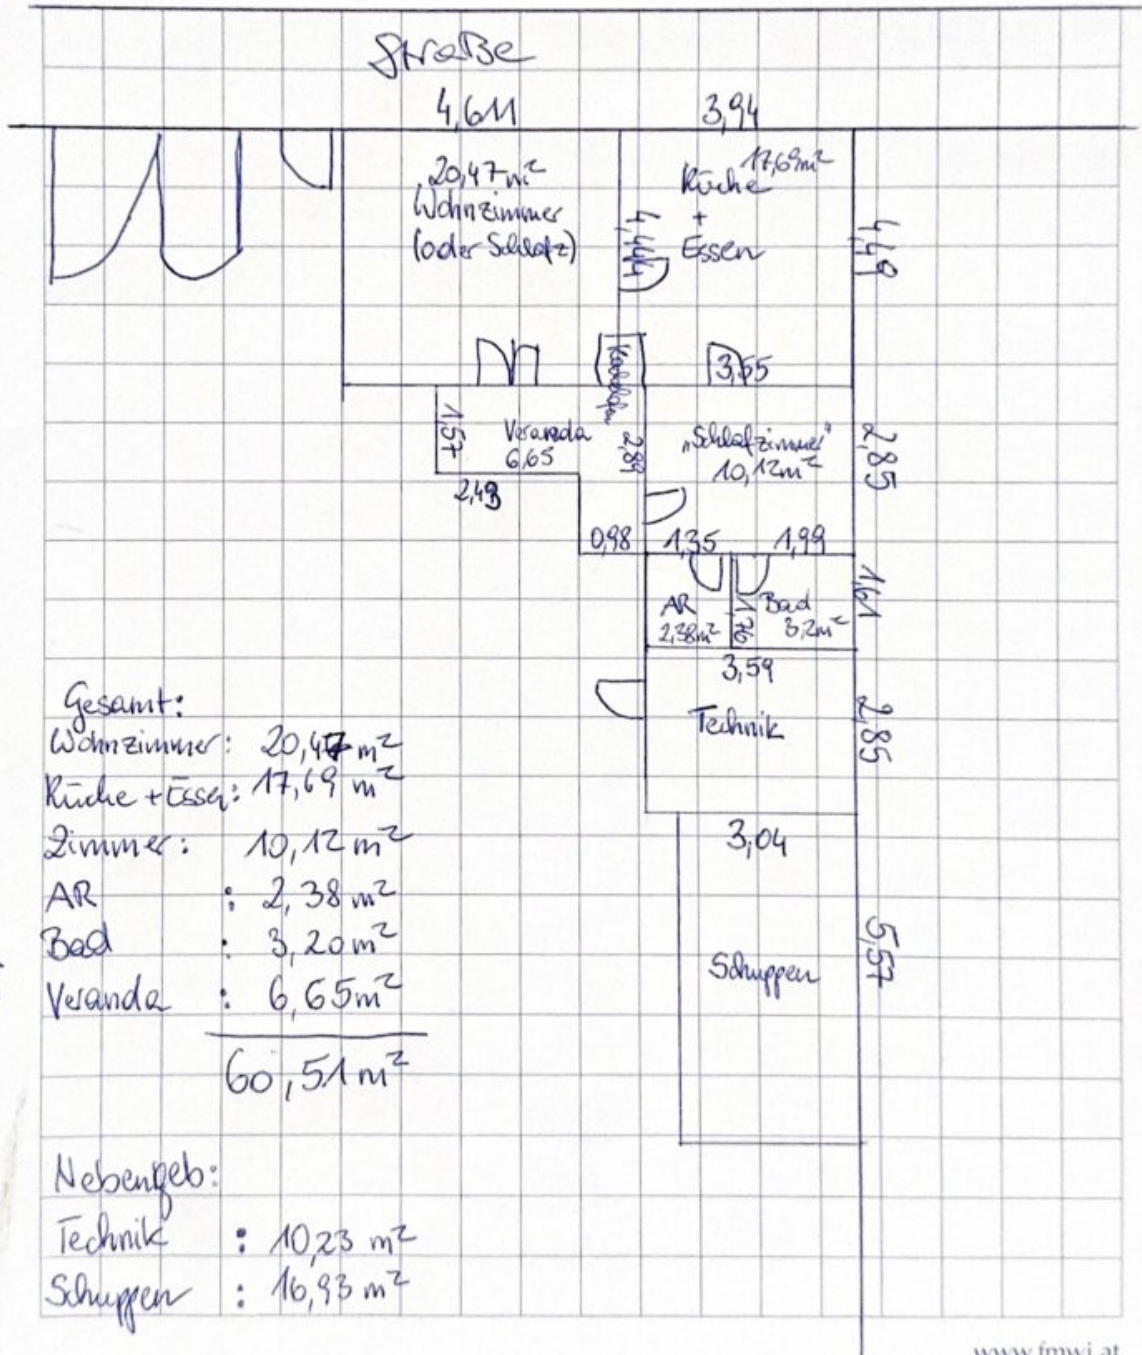 Straße
4,611
3,94
20,47 m²
Wohnzimmer
(oder Schlafz)
17,69m²
Küche
+
Essen
4,444
4,49
Kachelofen
3,55
1,57
Veranda
6,65
2,89
2,49
„Schlafzimmer"
10,12m²
2,85
0,98
1,35
1,99
AR
2,38m²
1,76
Bad
3,2m²
1,61
3,59
Technik
2,85
3,04
Schuppen
5,57
Gesamt:
Wohnzimmer: 20,47 m²
Küche + Essen: 17,69 m²
Zimmer: 10,12 m²
AR : 2,38 m²
Bad : 3,20 m²
Veranda : 6,65m²
60,51 m²
Nebengeb:
Technik : 10,23 m²
Schuppen : 16,93 m²
www.fmwi.at